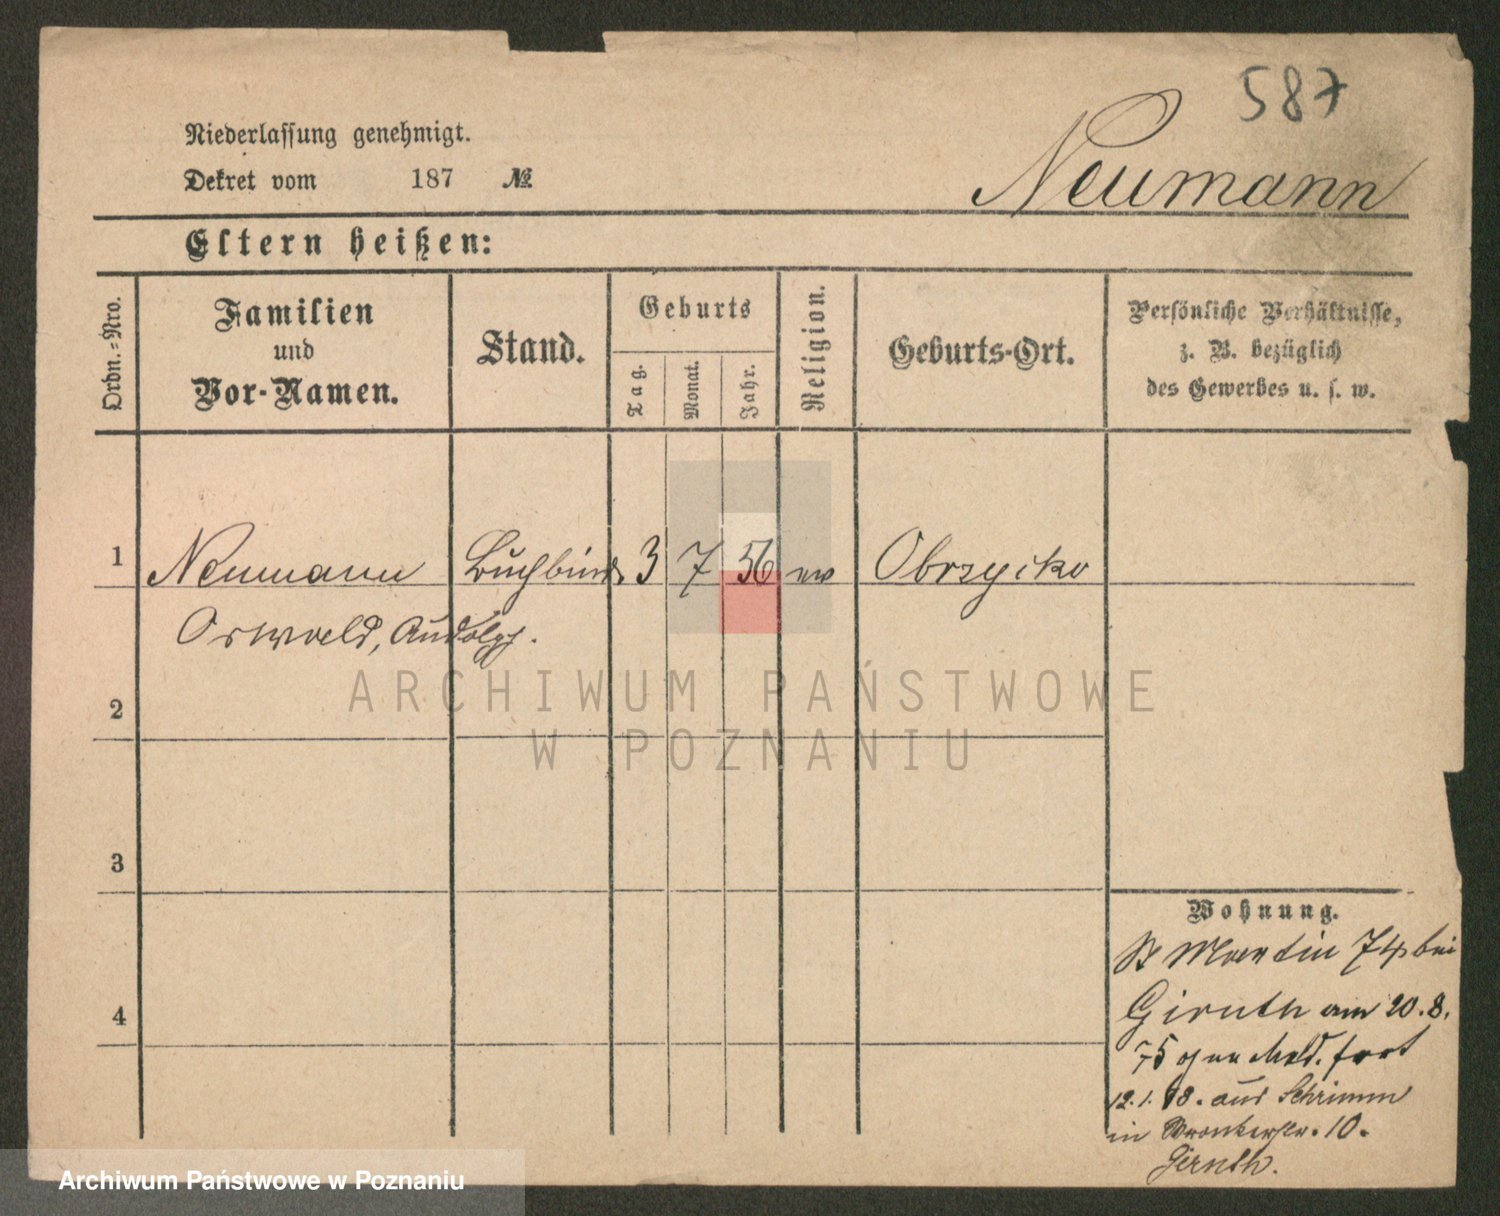 587
Niederlassung genehmigt.
Dekret vom 187 №
Neumann
Eltern heißen:
Ordn.-Nro.
Familien
und
Vor-Namen.
Stand.
Geburts
Tag.
Monat.
Jahr.
Religion.
Geburts-Ort.
Persönliche Verhältnisse,
z. B. bezüglich
des Gewerbes u. s. w.
1 Neumann Buchbinder 3 7 56 ev Obrzycko
Oswald, Rudolph.
ARCHIWUM PAŃSTWOWE
W POZNANIU
2
3
4
Wohnung.
St Martin 74 bei
am 20.8.
75 ohne Meld. fort
12.1.78. aus Schrimm
in Wronkerstr. 10.
Archiwum Państwowe w Poznaniu